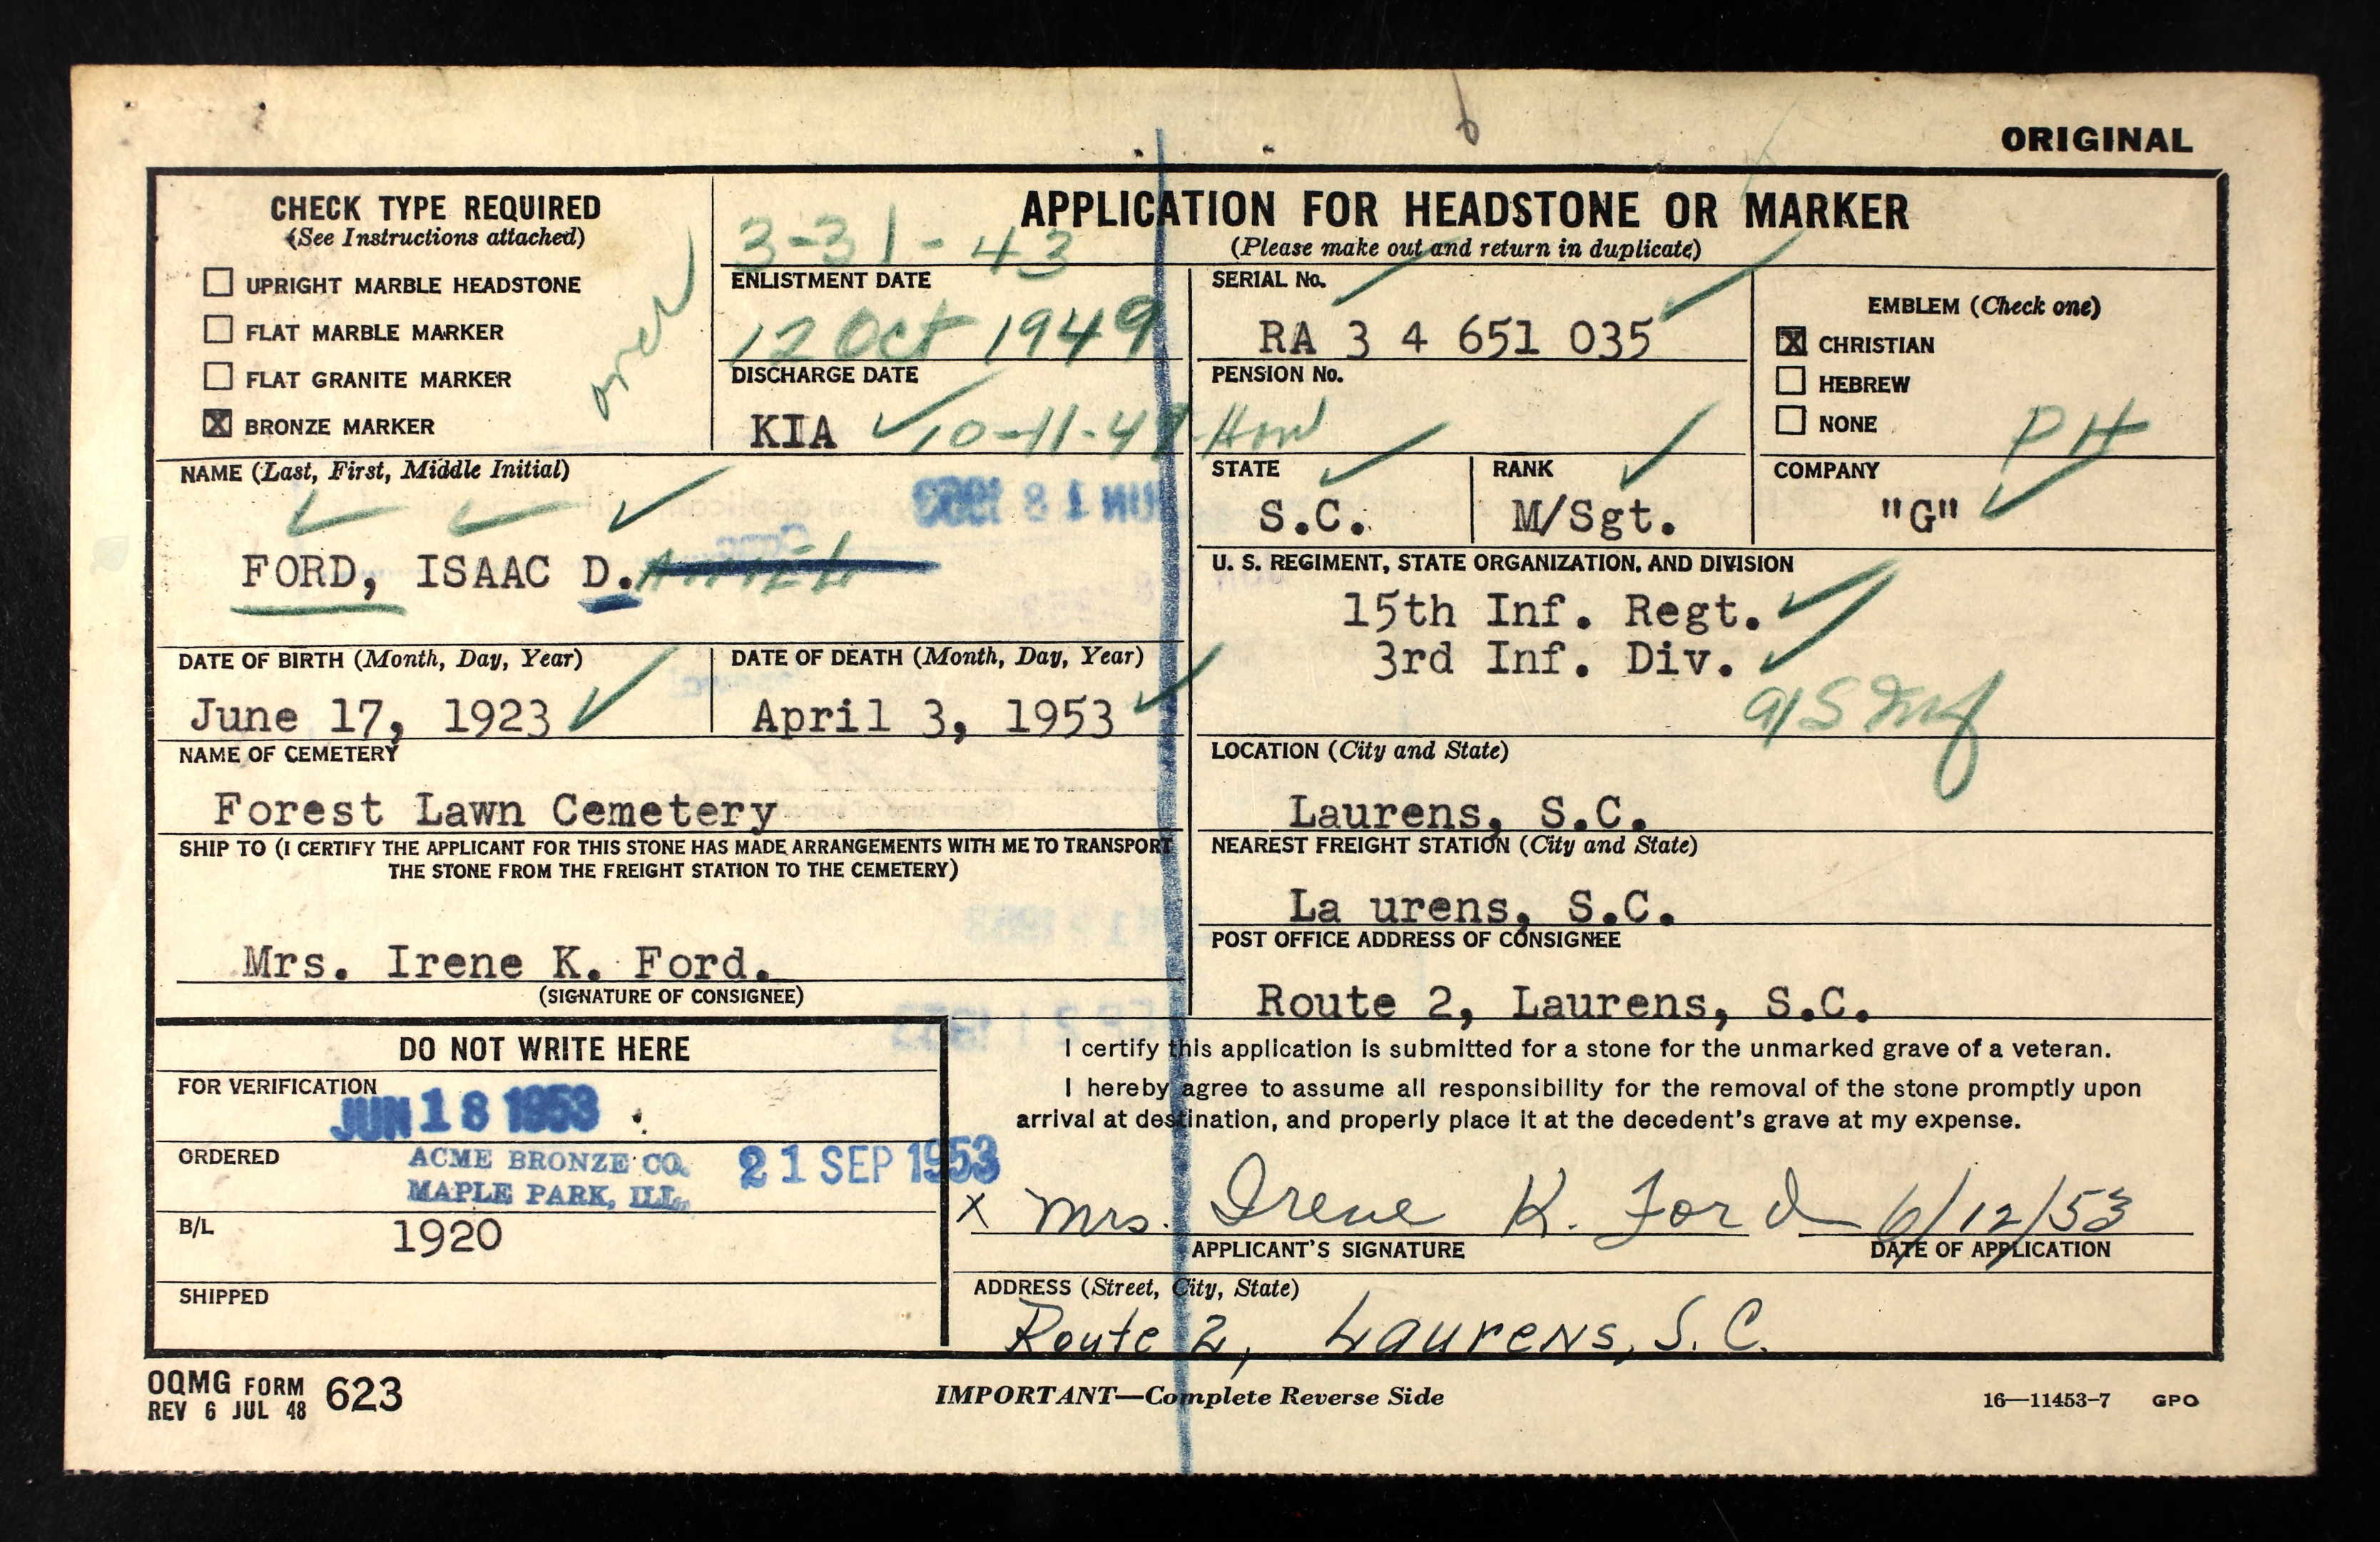 ORIGINAL
CHECK TYPE REQUIRED
(See Instructions attached)
UPRIGHT MARBLE HEADSTONE
FLAT MARBLE MARKER
FLAT GRANITE MARKER
X BRONZE MARKER
over
APPLICATION FOR HEADSTONE OR MARKER
(Please make out and return in duplicate)
3-31-43
ENLISTMENT DATE
12 Oct 1949
DISCHARGE DATE
KIA 10-11-49-Hon
SERIAL No.
RA 3 4 651 035
PENSION No.
EMBLEM (Check one)
X CHRISTIAN
HEBREW
NONE
PH
NAME (Last, First, Middle Initial)
FORD, ISAAC D.
STATE
S.C.
RANK
M/Sgt.
COMPANY
"G"
U. S. REGIMENT, STATE ORGANIZATION, AND DIVISION
15th Inf. Regt.
3rd Inf. Div.
DATE OF BIRTH (Month, Day, Year)
June 17, 1923
DATE OF DEATH (Month, Day, Year)
April 3, 1953
NAME OF CEMETERY
Forest Lawn Cemetery
LOCATION (City and State)
Laurens, S.C.
SHIP TO (I CERTIFY THE APPLICANT FOR THIS STONE HAS MADE ARRANGEMENTS WITH ME TO TRANSPORT
THE STONE FROM THE FREIGHT STATION TO THE CEMETERY)
Mrs. Irene K. Ford.
(SIGNATURE OF CONSIGNEE)
NEAREST FREIGHT STATION (City and State)
La urens, S.C.
POST OFFICE ADDRESS OF CONSIGNEE
Route 2, Laurens, S.C.
DO NOT WRITE HERE
FOR VERIFICATION
JUN 18 1953
ORDERED
ACME BRONZE CO.
MAPLE PARK, ILL.
21 SEP 1953
B/L
1920
SHIPPED
I certify this application is submitted for a stone for the unmarked grave of a veteran.
I hereby agree to assume all responsibility for the removal of the stone promptly upon
arrival at destination, and properly place it at the decedent's grave at my expense.
x Mrs. Irene K. Ford 6/12/53
APPLICANT'S SIGNATURE
DATE OF APPLICATION
ADDRESS (Street, City, State)
Route 2, Laurens, S.C.
OQMG FORM 623
REV 6 JUL 48
IMPORTANT—Complete Reverse Side
16—11453-7 GPO